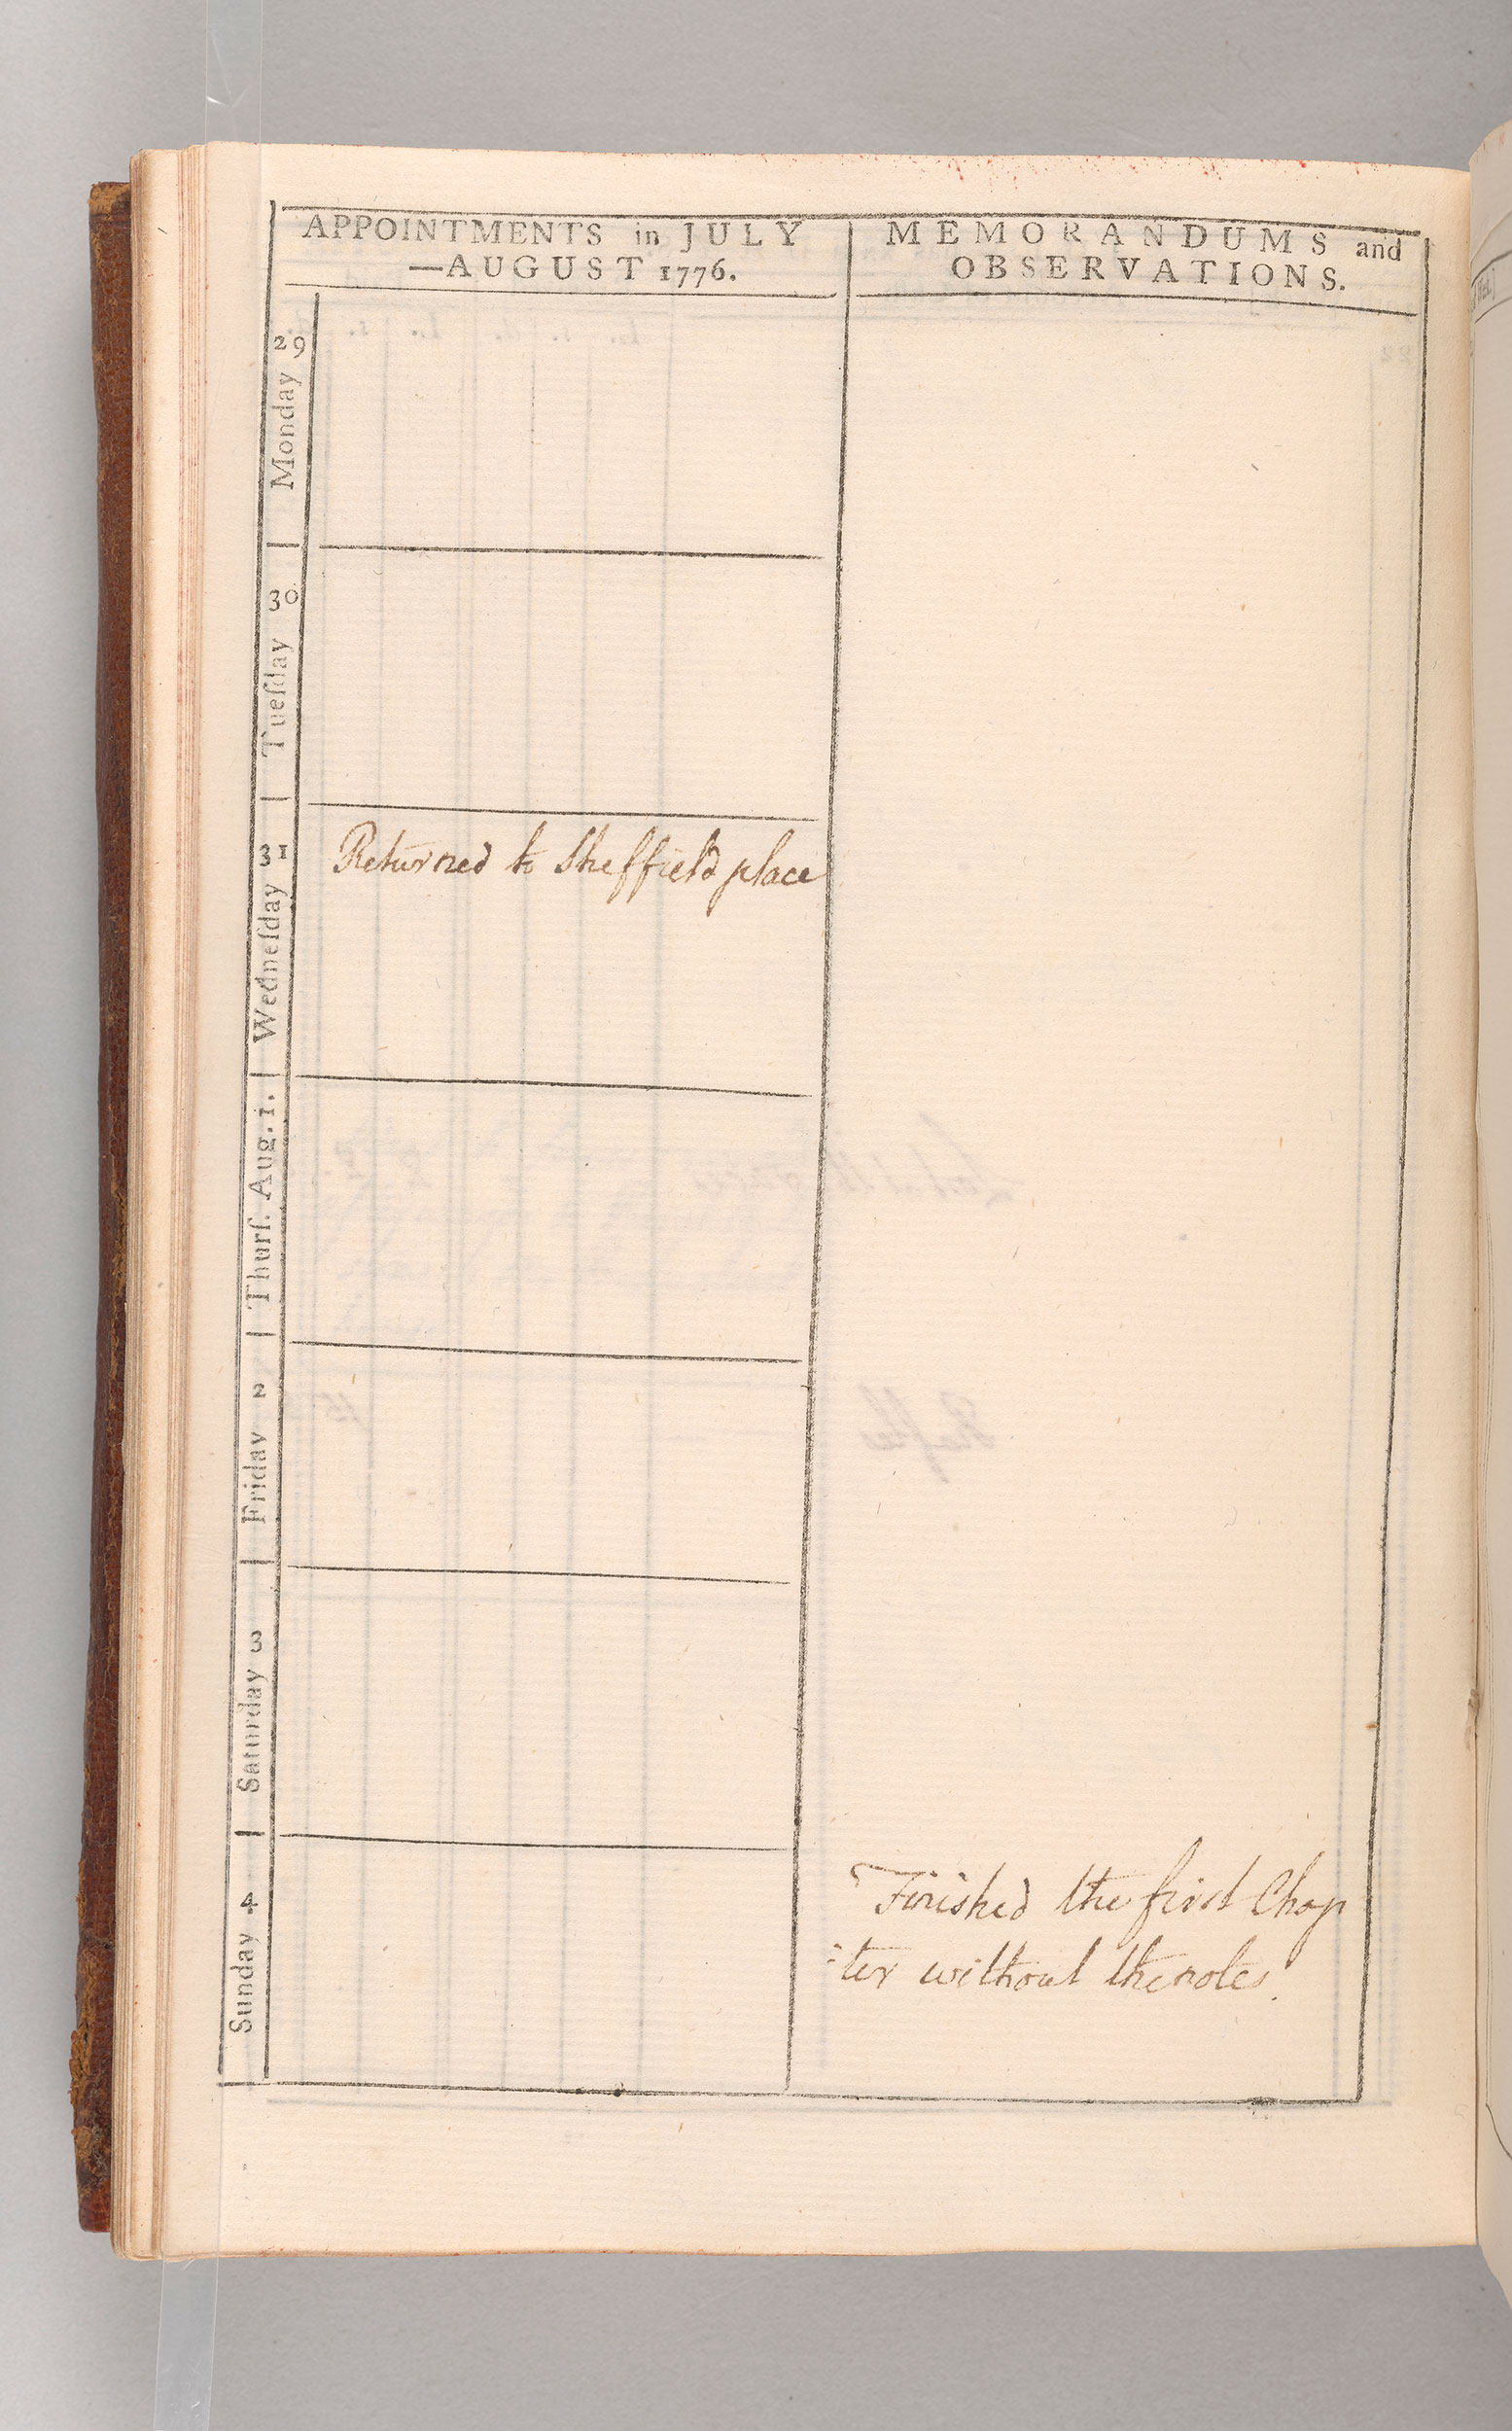 APPOINTMENTS in JULY
—AUGUST 1776.
MEMORANDUMS and
OBSERVATIONS.
Monday 29
Tueſday 30
Wedneſday 31
Returned to Sheffield place
Thurſ. Aug. 1.
Friday 2
Saturday 3
Sunday 4
Finished the first Chap
:ter without the notes.